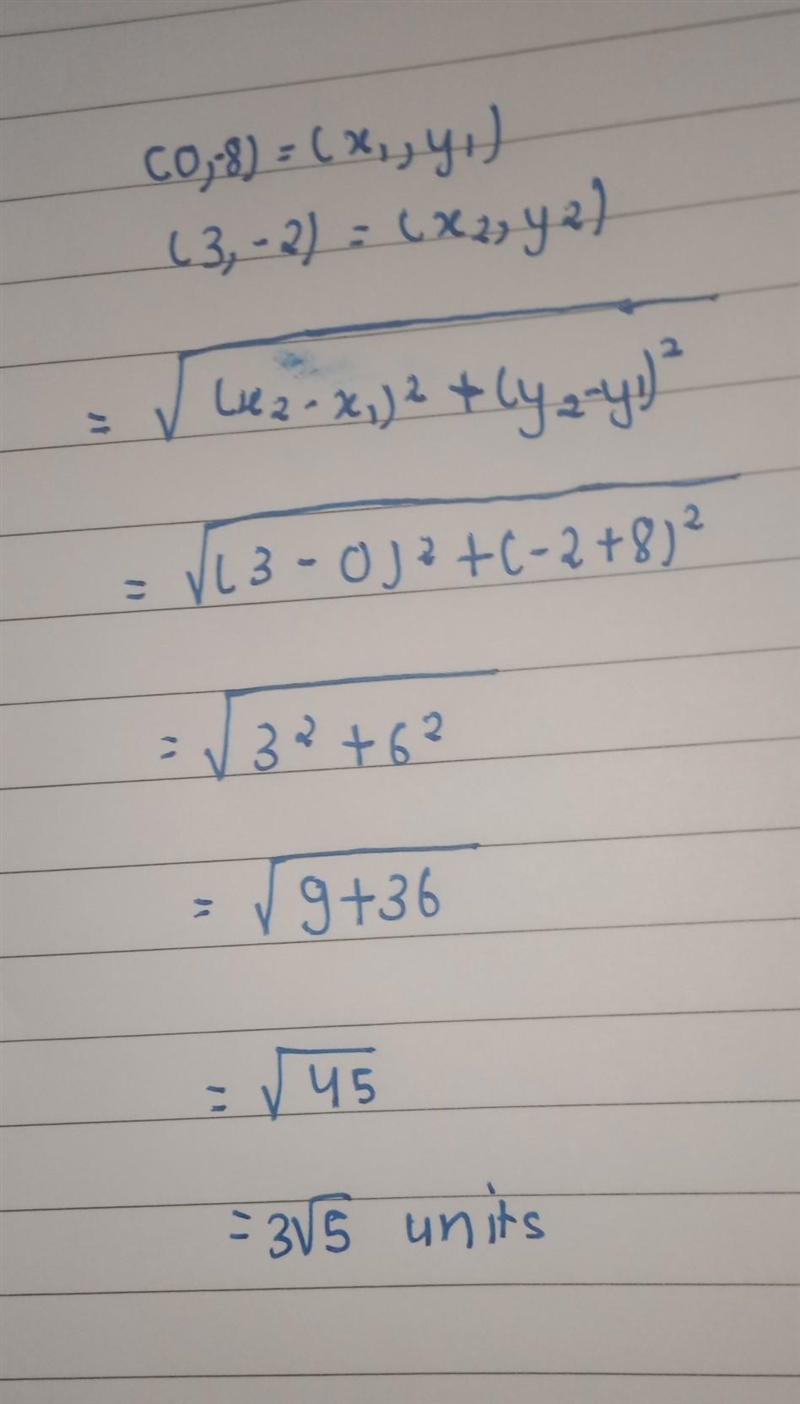 (0,-8) = (x₁, y₁)
(3, -2) = (x₂, y₂)
= √(x₂ - x₁)² + (y₂ - y₁)²
= √(3 - 0)² + (-2 + 8)²
= √3² + 6²
= √9+36
= √45
= 3√5 units